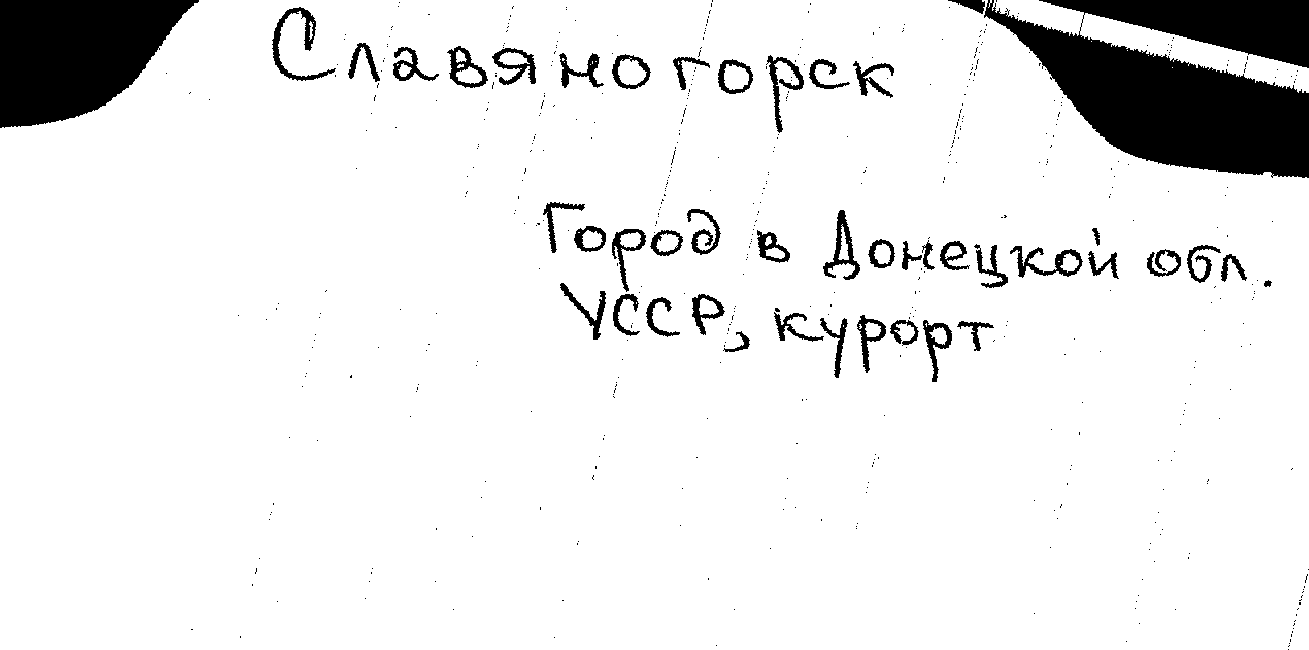 Славяногорск
Город в Донецкой обл.
УССР, курорт